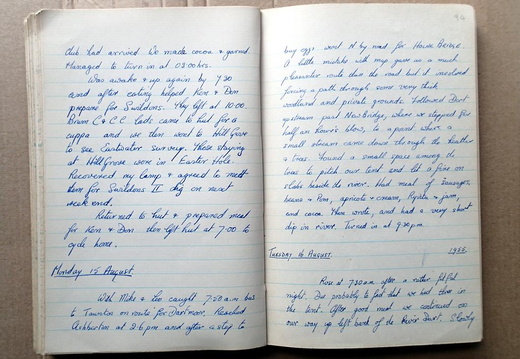 club had arrived. We made cocoa & yarned.
Managed to turn in at 03.00 hrs.
Was awake & up again by 7.30
and after eating helped Ken & Don
prepare for Swildons. They left at 10.00
C & CC lads came to hut for a
cuppa and we then went to Hill Grove
to see survey. Those staying
at Hill Grove were in Easter Hole.
Recovered my lamp & agreed to meet
them for Swildons II dig on next
week end.
Returned to hut & prepared meal
for Ken & Don then left hut at 7.00 to
cycle home.
Monday 15 August.
With Mike & caught 7.50 a.m. bus
to Taunton en route for Dartmoor. Reached
Ashburton at 2.6 pm and after a stop to
96
buy eggs, went N by road for HOLNE BRIDGE.
A little mistake with map gave us a much
pleasanter route than the road but it involved
forcing a path through some very thick
woodland and private grounds. Followed Dart
upstream past New Bridge, where we stopped for
half an hour's blow, to a point where a
small stream came down through the heather
& trees. Found a small space among the
trees to pitch our tent and lit a fire on
slabs beside the river. Had meal of Sausages,
beans & Peas, apricots & cream, Ryvita & jam,
and cocoa. Then wrote, and had a very short
dip in river. Turned in at 9.30 pm.
TUESDAY 16 AUGUST. 1955.
Rose at 7.30 a.m. after a rather fitful
night. Due probably to fact that we had three in
the tent. After good meal we continued on
our way up left bank of the River Dart. Slowly